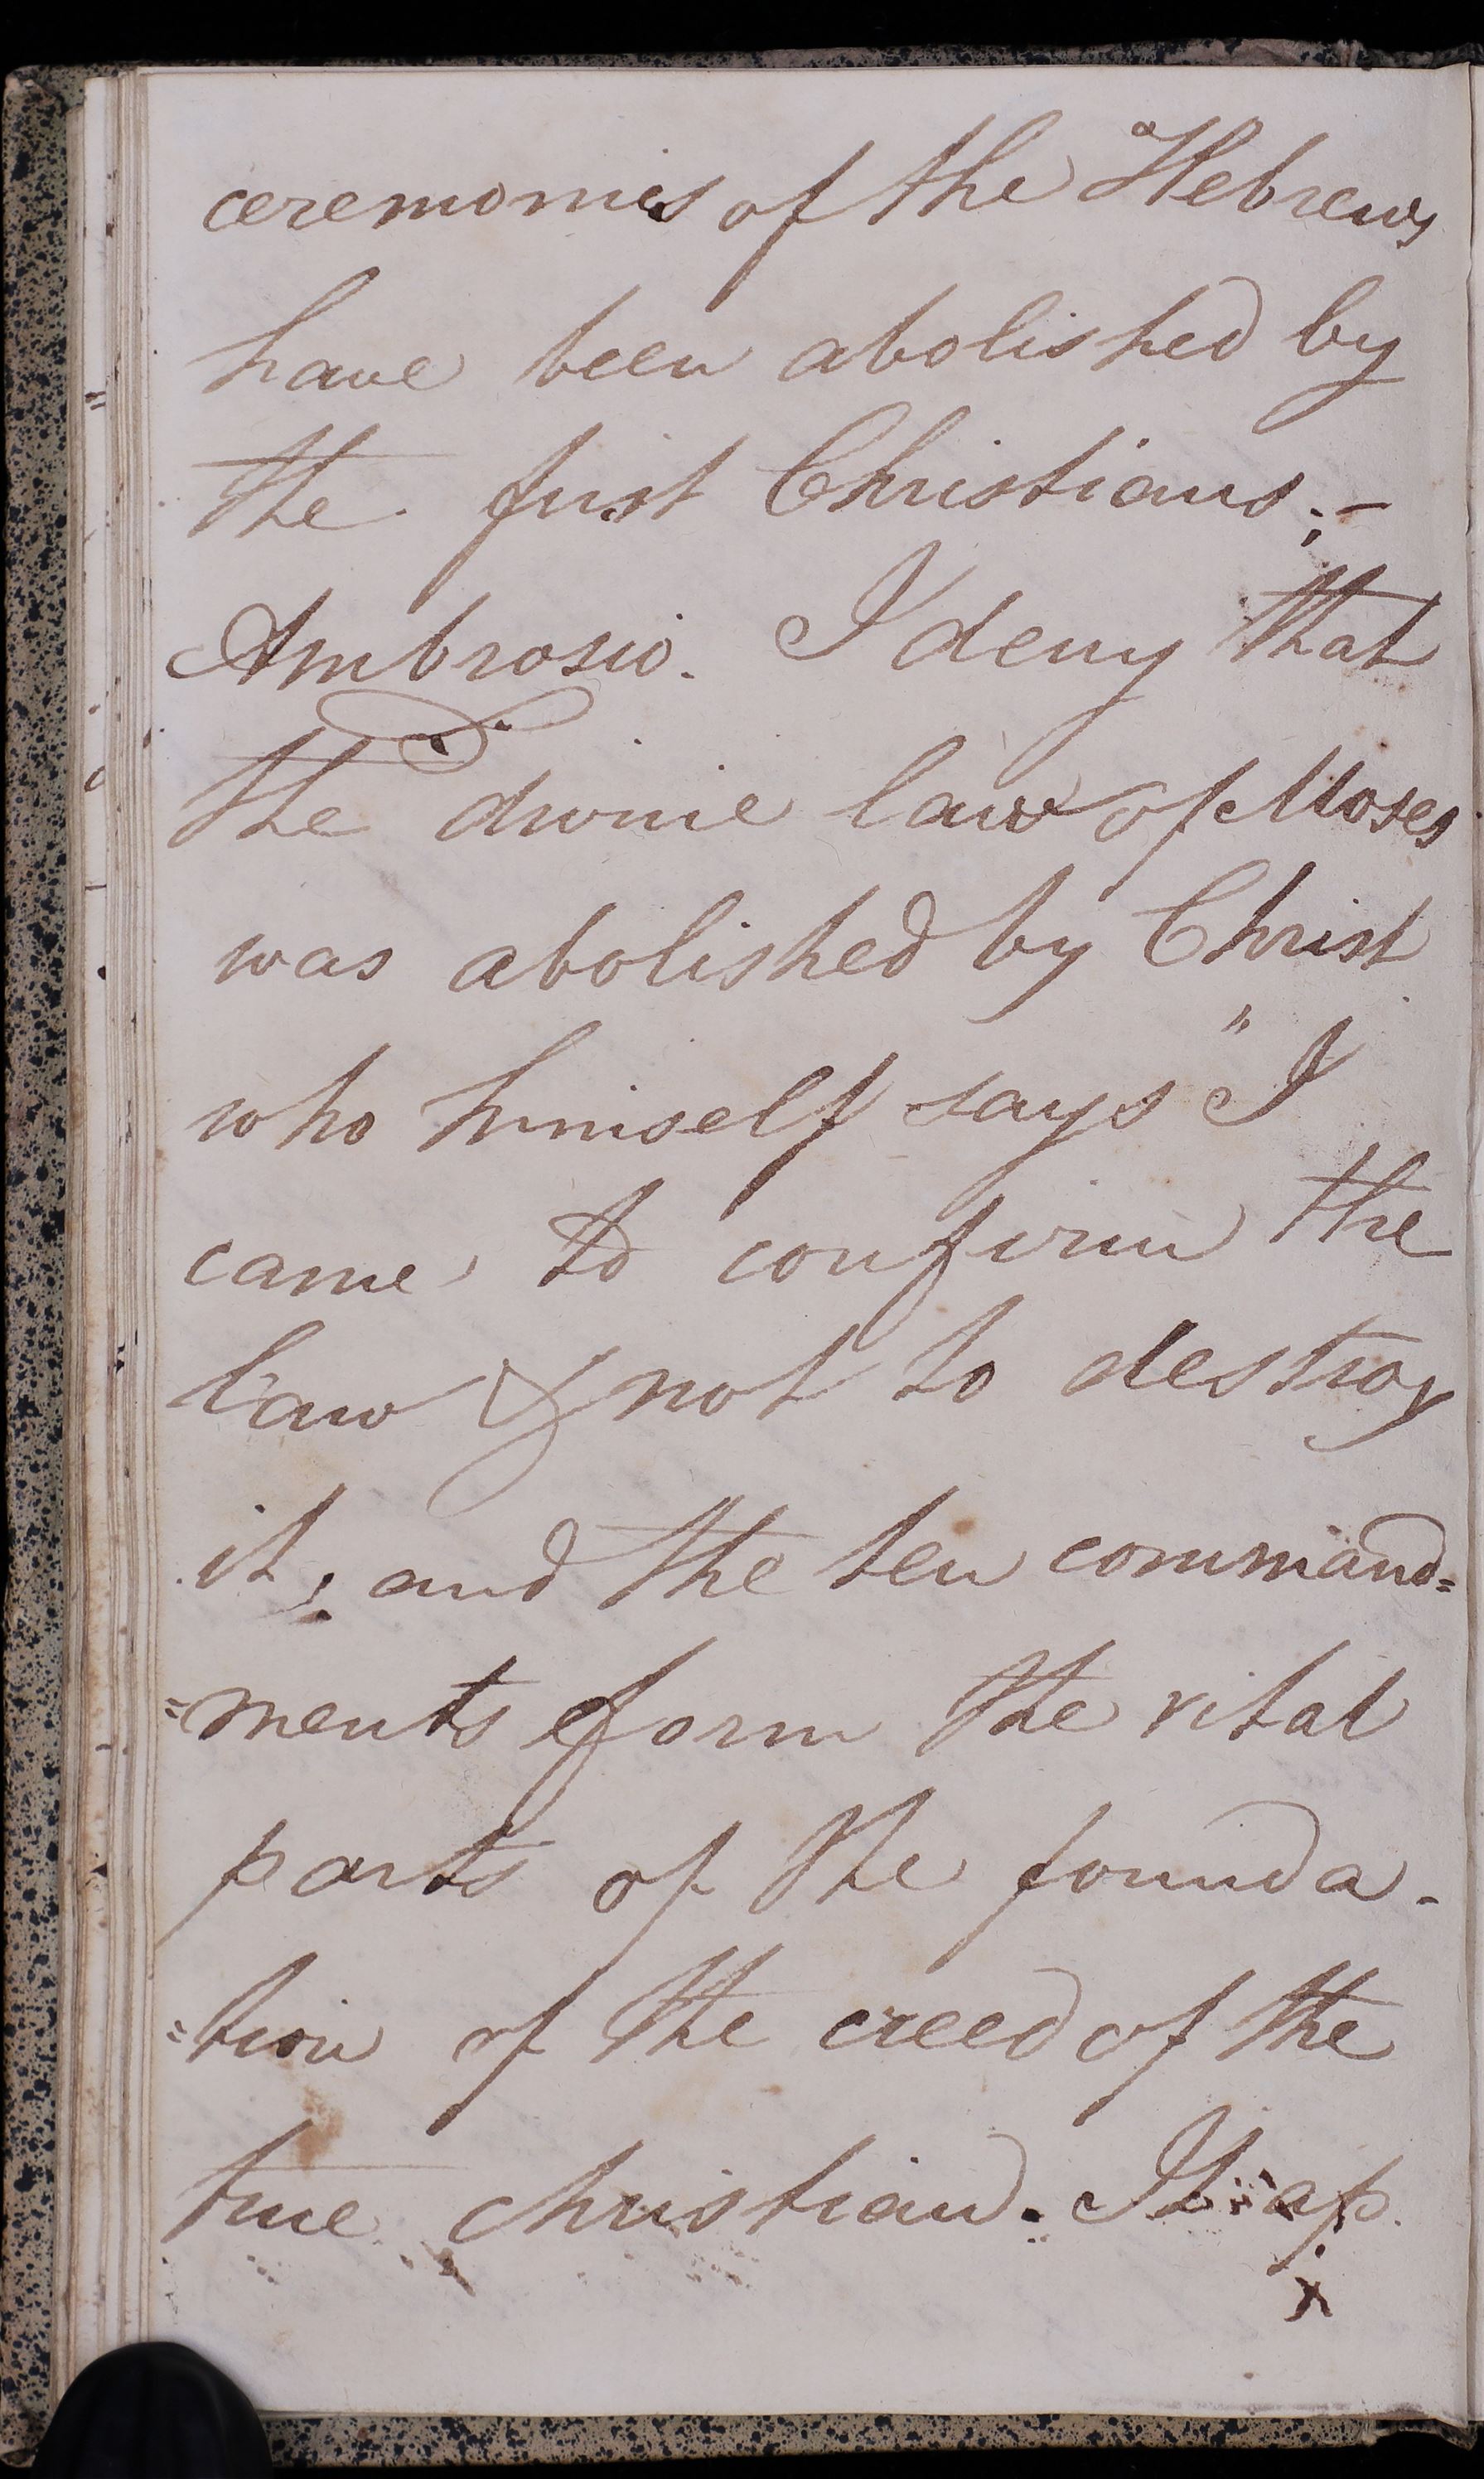 ceremonies of the Hebrews
have been abolished by
the first Christians;-
Ambrosio. I deny that
the divine law of Moses
was abolished by Christ
who himself says "I
came to confirm the
law & not to destroy
it; and the ten command=
=ments form the vital
parts of the founda-
=tion of the creed of the
true christian. It ap
x